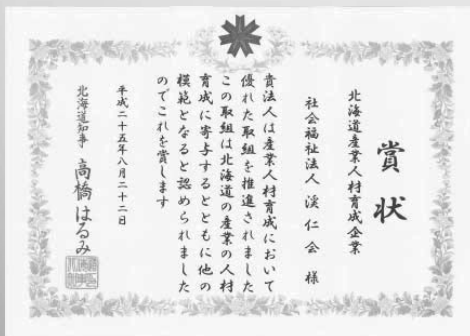 賞状
北海道産業人材育成企業
社会福祉法人 渓仁会 様
貴法人は産業人材育成において
優れた取組を推進されました
この取組は北海道の産業の人材
育成に寄与するとともに他の
模範となると認められました
のでこれを賞します
平成二十五年八月二十二日
北海道知事 高橋はるみ